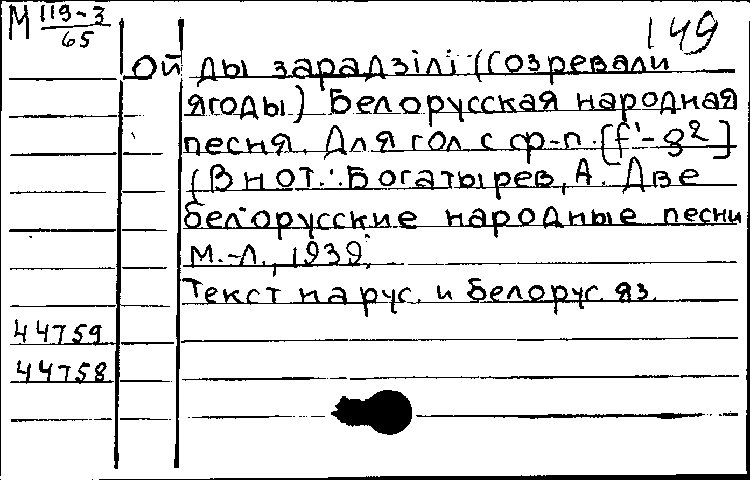 М 119-3/65
149
Ой ды зарадзілі (Созревали
ягоды) Белорусская народная
песня. Для гол с ф-п. [f¹-g²]
(В нот.: Богатырев, А. Две
белорусские народные песни
М.-Л., 1939.
Текст на рус. и белорус. яз.
44759
44758